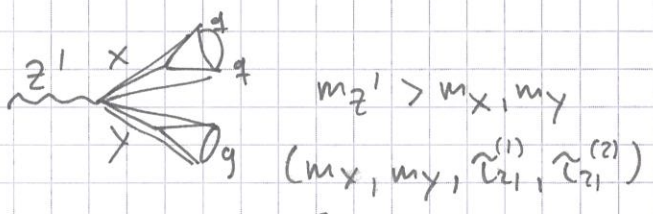 Z' X q
q
m_Z' > m_X, m_Y
Y g
(m_X, m_Y, τ̃_21^(1), τ̃_21^(2))